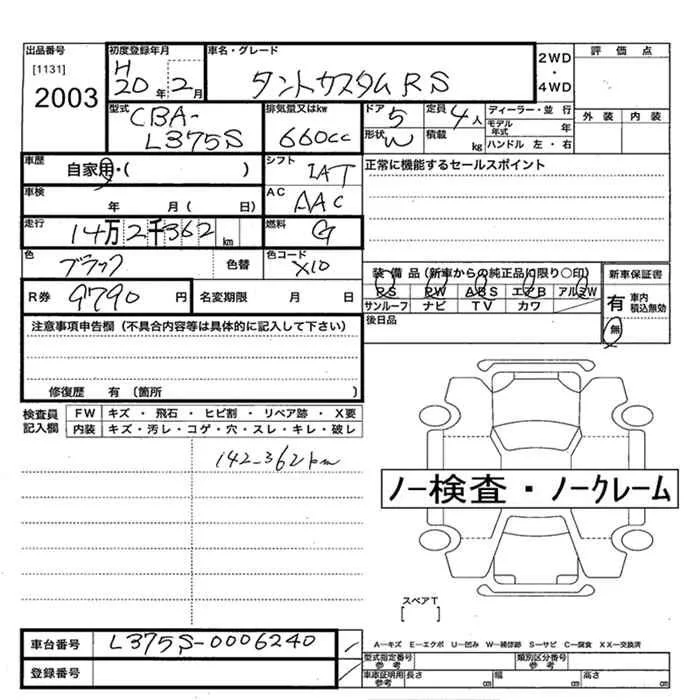 出品番号 初度登録年月 車名・グレード 2WD・4WD 評価点
[1131] H20年2月 タントカスタムRS
2003
型式 CBA-L375S 排気量又はkw 660cc ドア 5 定員 4人 ディーラー・並行 外装 内装
形状 W 積載 kg モデル年式 年
ハンドル 左・右
車歴 自家用・( ) シフト IAT 正常に機能するセールスポイント
車検 年 月( 日) AC AAC
走行 14万2千362km 燃料 G
色 ブラック 色替 色コード X10 装備品(新車からの純正品に限り〇印) 新車保証書
PS PW ABS エアB アルミW 有 車内積込無効
R券 9790円 名変期限 月 日 サンルーフ ナビ TV カワ 無
注意事項申告欄(不具合内容等は具体的に記入して下さい) 後日品
修復歴 有(箇所 )
検査員記入欄 FW キズ・飛石・ヒビ割・リペア跡・X要
内装 キズ・汚レ・コゲ・穴・スレ・キレ・破レ
142-362km
ノー検査・ノークレーム
スペアT
[ ]
車台番号 L375S-0006240 A―キズ E―エクボ U―凹み W―補修跡 S―サビ C―腐食 XX―交換済
型式指定番号 参考 類別区分番号 参考
登録番号 車庫証明用 参考 長さ cm 幅 cm 高さ cm